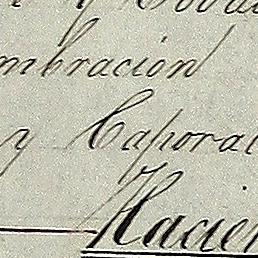 y
mbración
y Caporal
Hacien